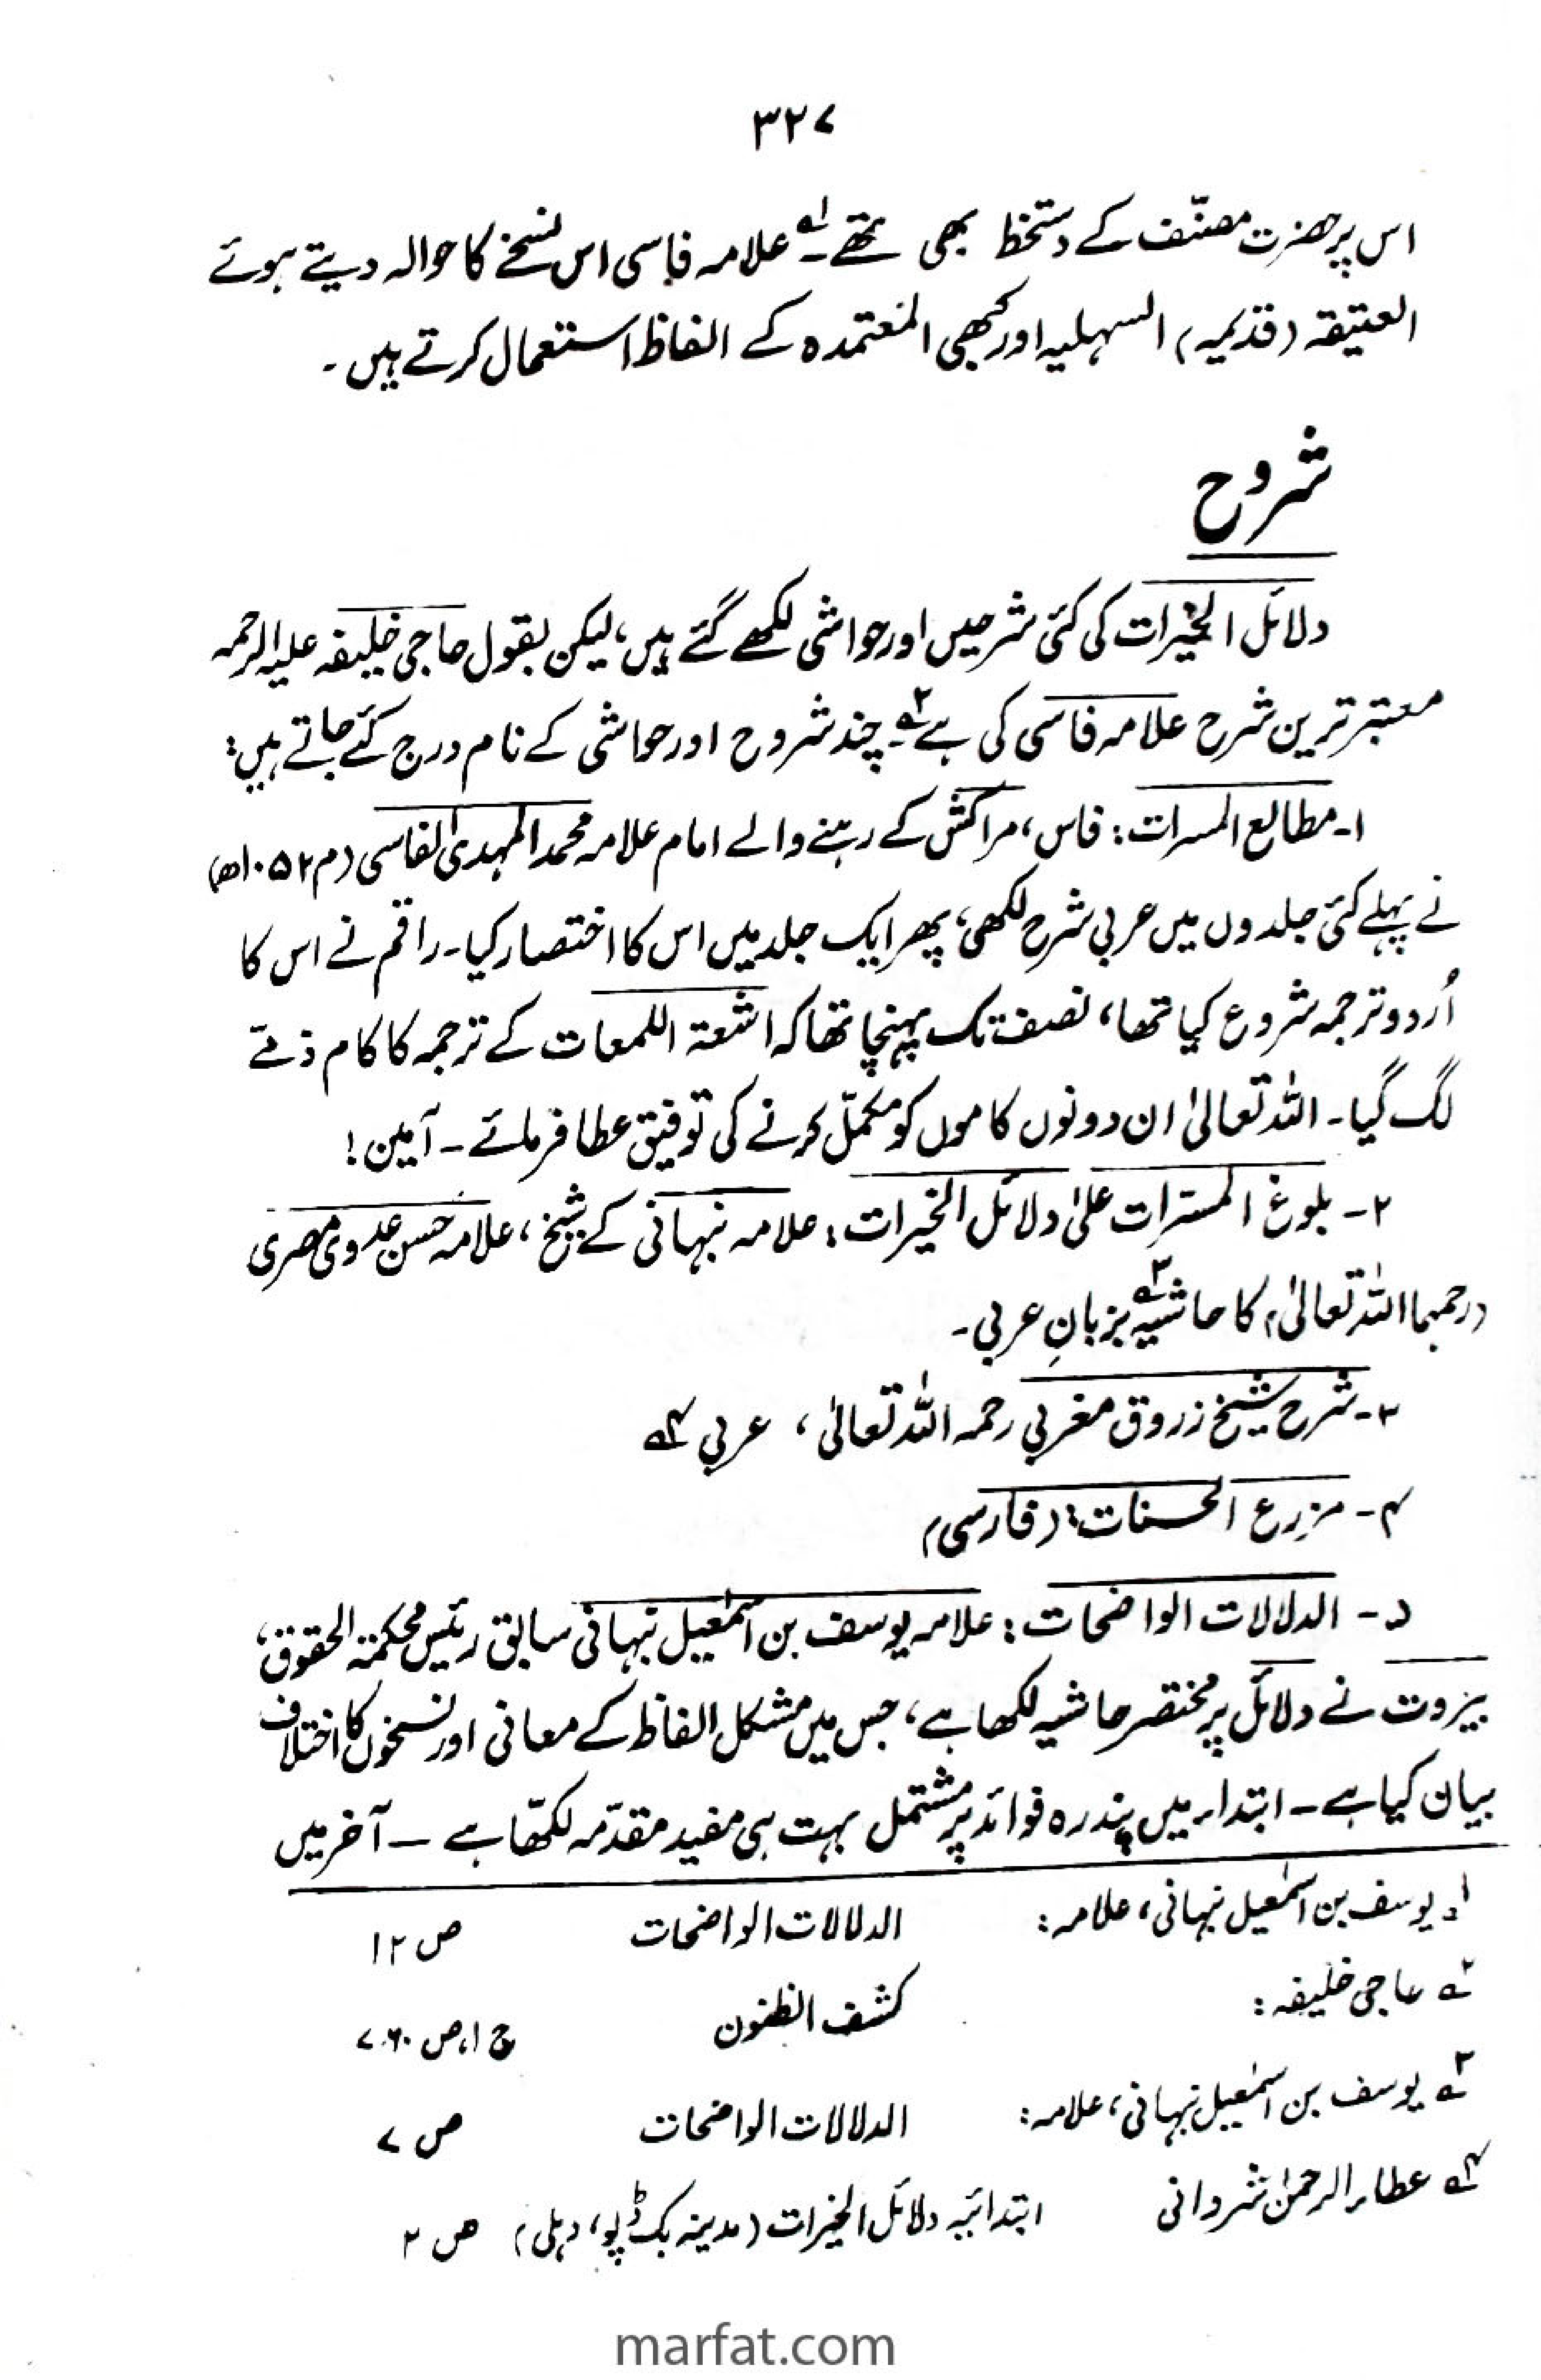 ۳۲۷
اس پر حضرت مصنّف کے دستخط بھی تھے۔ لہ علامہ فاسی اس نسخے کا حوالہ دیتے ہوئے
العتیقہ (قدیمہ) السہلیہ اور کبھی المعتمدہ کے الفاظ استعمال کرتے ہیں۔
شروح
دلائل الخیرات کی کئی شرحیں اور حواشی لکھے گئے ہیں، لیکن بقول حاجی خلیفہ علیہ الرحمہ
معتبر ترین شرح علامہ فاسی کی ہے ۲ہ۔ چند شروح اور حواشی کے نام درج کئے جاتے ہیں:
۱۔ مطالع المسرات: فاس، مراکش کے رہنے والے امام علامہ محمد المہدی الفاسی (م ۱۰۵۲ھ)
نے پہلے کئی جلدوں میں عربی شرح لکھی، پھر ایک جلد میں اس کا اختصار کیا۔ راقم نے اس کا
اُردو ترجمہ شروع کیا تھا، نصف تک پہنچا تھا کہ اشعۃ اللمعات کے ترجمہ کا کام ذمّے
لگ گیا۔ اللہ تعالیٰ ان دونوں کاموں کو مکمّل کرنے کی توفیق عطا فرمائے۔ آمین!
۲۔ بلوغ المسرّات علیٰ دلائل الخیرات: علامہ نبہانی کے شیخ، علامہ حسن عدوی مصری
(رحمہما اللہ تعالیٰ) کا حاشیہ ۳ہ بزبانِ عربی۔
۳۔ شرح شیخ زروق مغربی رحمہ اللہ تعالیٰ، عربی ۴ہ
۴۔ مزرع الحسنات: (فارسی)
۵۔ الدلالات الواضحات: علامہ یوسف بن اسمٰعیل نبہانی سابق رئیس محکمۃ الحقوق،
بیروت نے دلائل پر مختصر حاشیہ لکھا ہے، جس میں مشکل الفاظ کے معانی اور نسخوں کا اختلاف
بیان کیا ہے۔ ابتداء میں پندرہ فوائد پر مشتمل بہت ہی مفید مقدّمہ لکھّا ہے ۔ آخر میں
لہ یوسف بن اسمٰعیل نبہانی، علامہ: الدلالات الواضحات ص ۱۲
۲ہ حاجی خلیفہ: کشف الظنون ج ۱، ص ۷۶۰
۳ہ یوسف بن اسمٰعیل نبہانی، علامہ: الدلالات الواضحات ص ۷
۴ہ عطاء الرحمٰن شروانی ابتدائیہ دلائل الخیرات (مدینہ بک ڈپو، دہلی) ص ۲
marfat.com